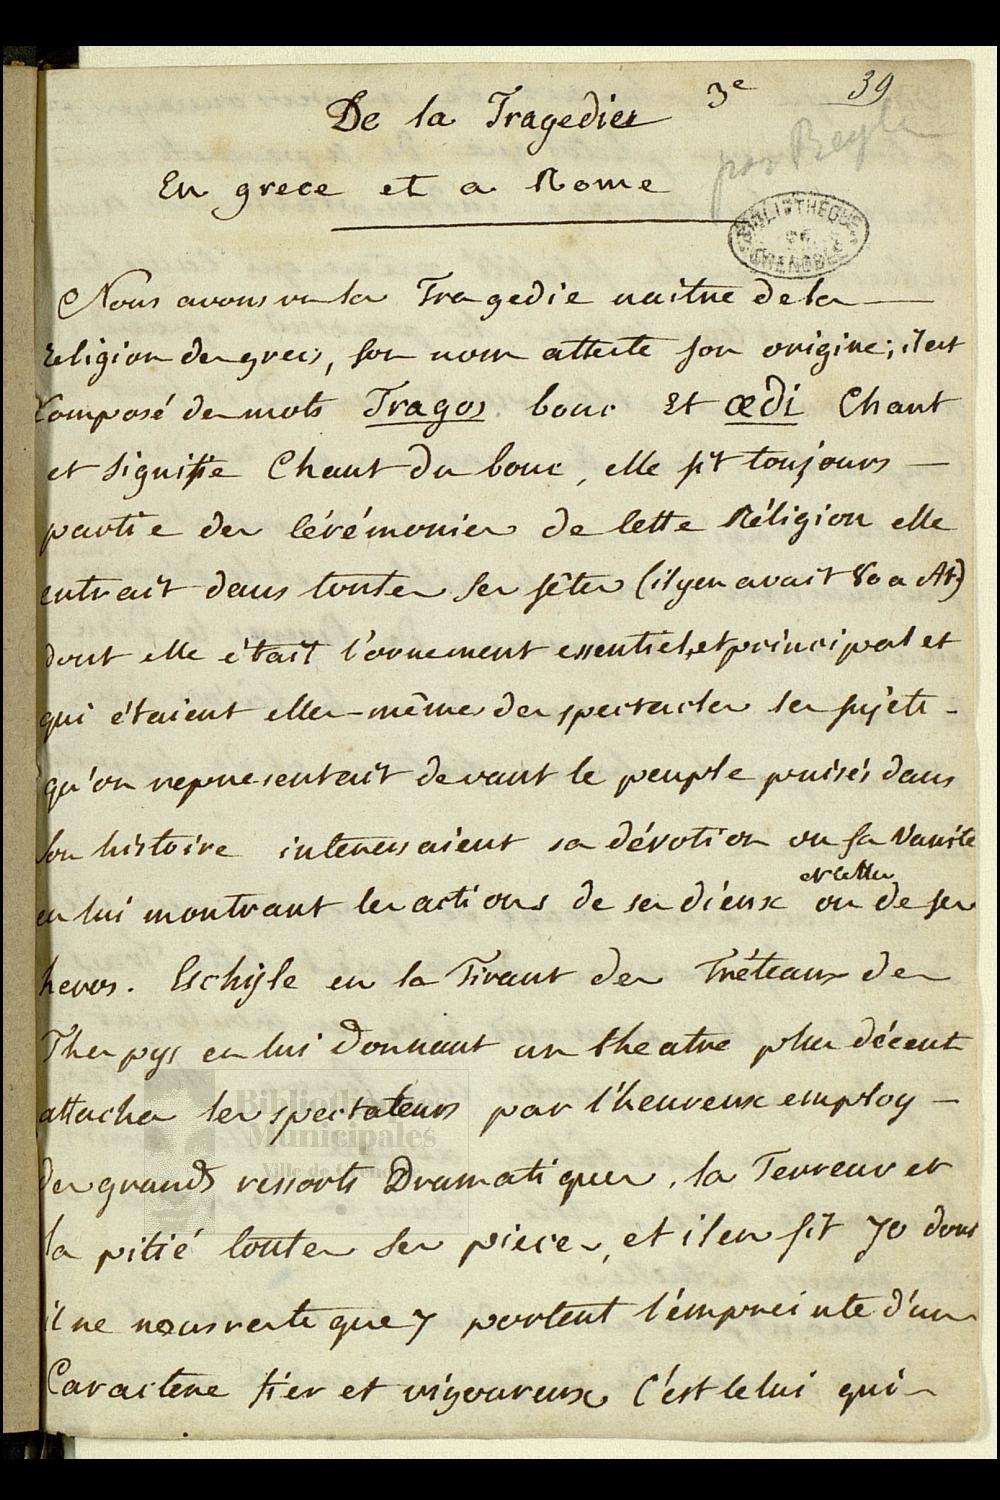 39
3e
De la Tragedie
par Beyle
En grece et a Rome
BIBLIOTHEQUE DE GRENOBLE
Nous avons vu la Tragedie naitre de la
religion des grecs, son nom atteste son origine; il est
Composé des mots Tragos bouc Et œdi Chant
et signifie Chant du bouc, elle fit toujours
partie des cérémonies de cette Réligion elle
entrait dans toutes ses fêtes (il y en avait 80 a At)
dont elle était l'ornement essentiel, et principal et
qui étaient elles-même des spectacles les sujets
qu'on representait devant le peuple puisés dans
son histoire interessaient sa dévotion ou sa Vanite
et celles
en lui montrant les actions de ses diéux ou de ses
heros. Eschyle en la Tirant des Tréteaux de
Thespys en lui Donnant un theatre plus décent
attacha les spectateurs par l'heureux employ
des grands ressorts Dramatiques, la Terreur et
la pitié toutes ses pieces, et il en fit 70 dont
il ne nous reste que 7 portent l'émpreinte d'un
Caractere fier et vigoureux C'est celui qui
Bibliothèques
Municipales
Ville de Grenoble